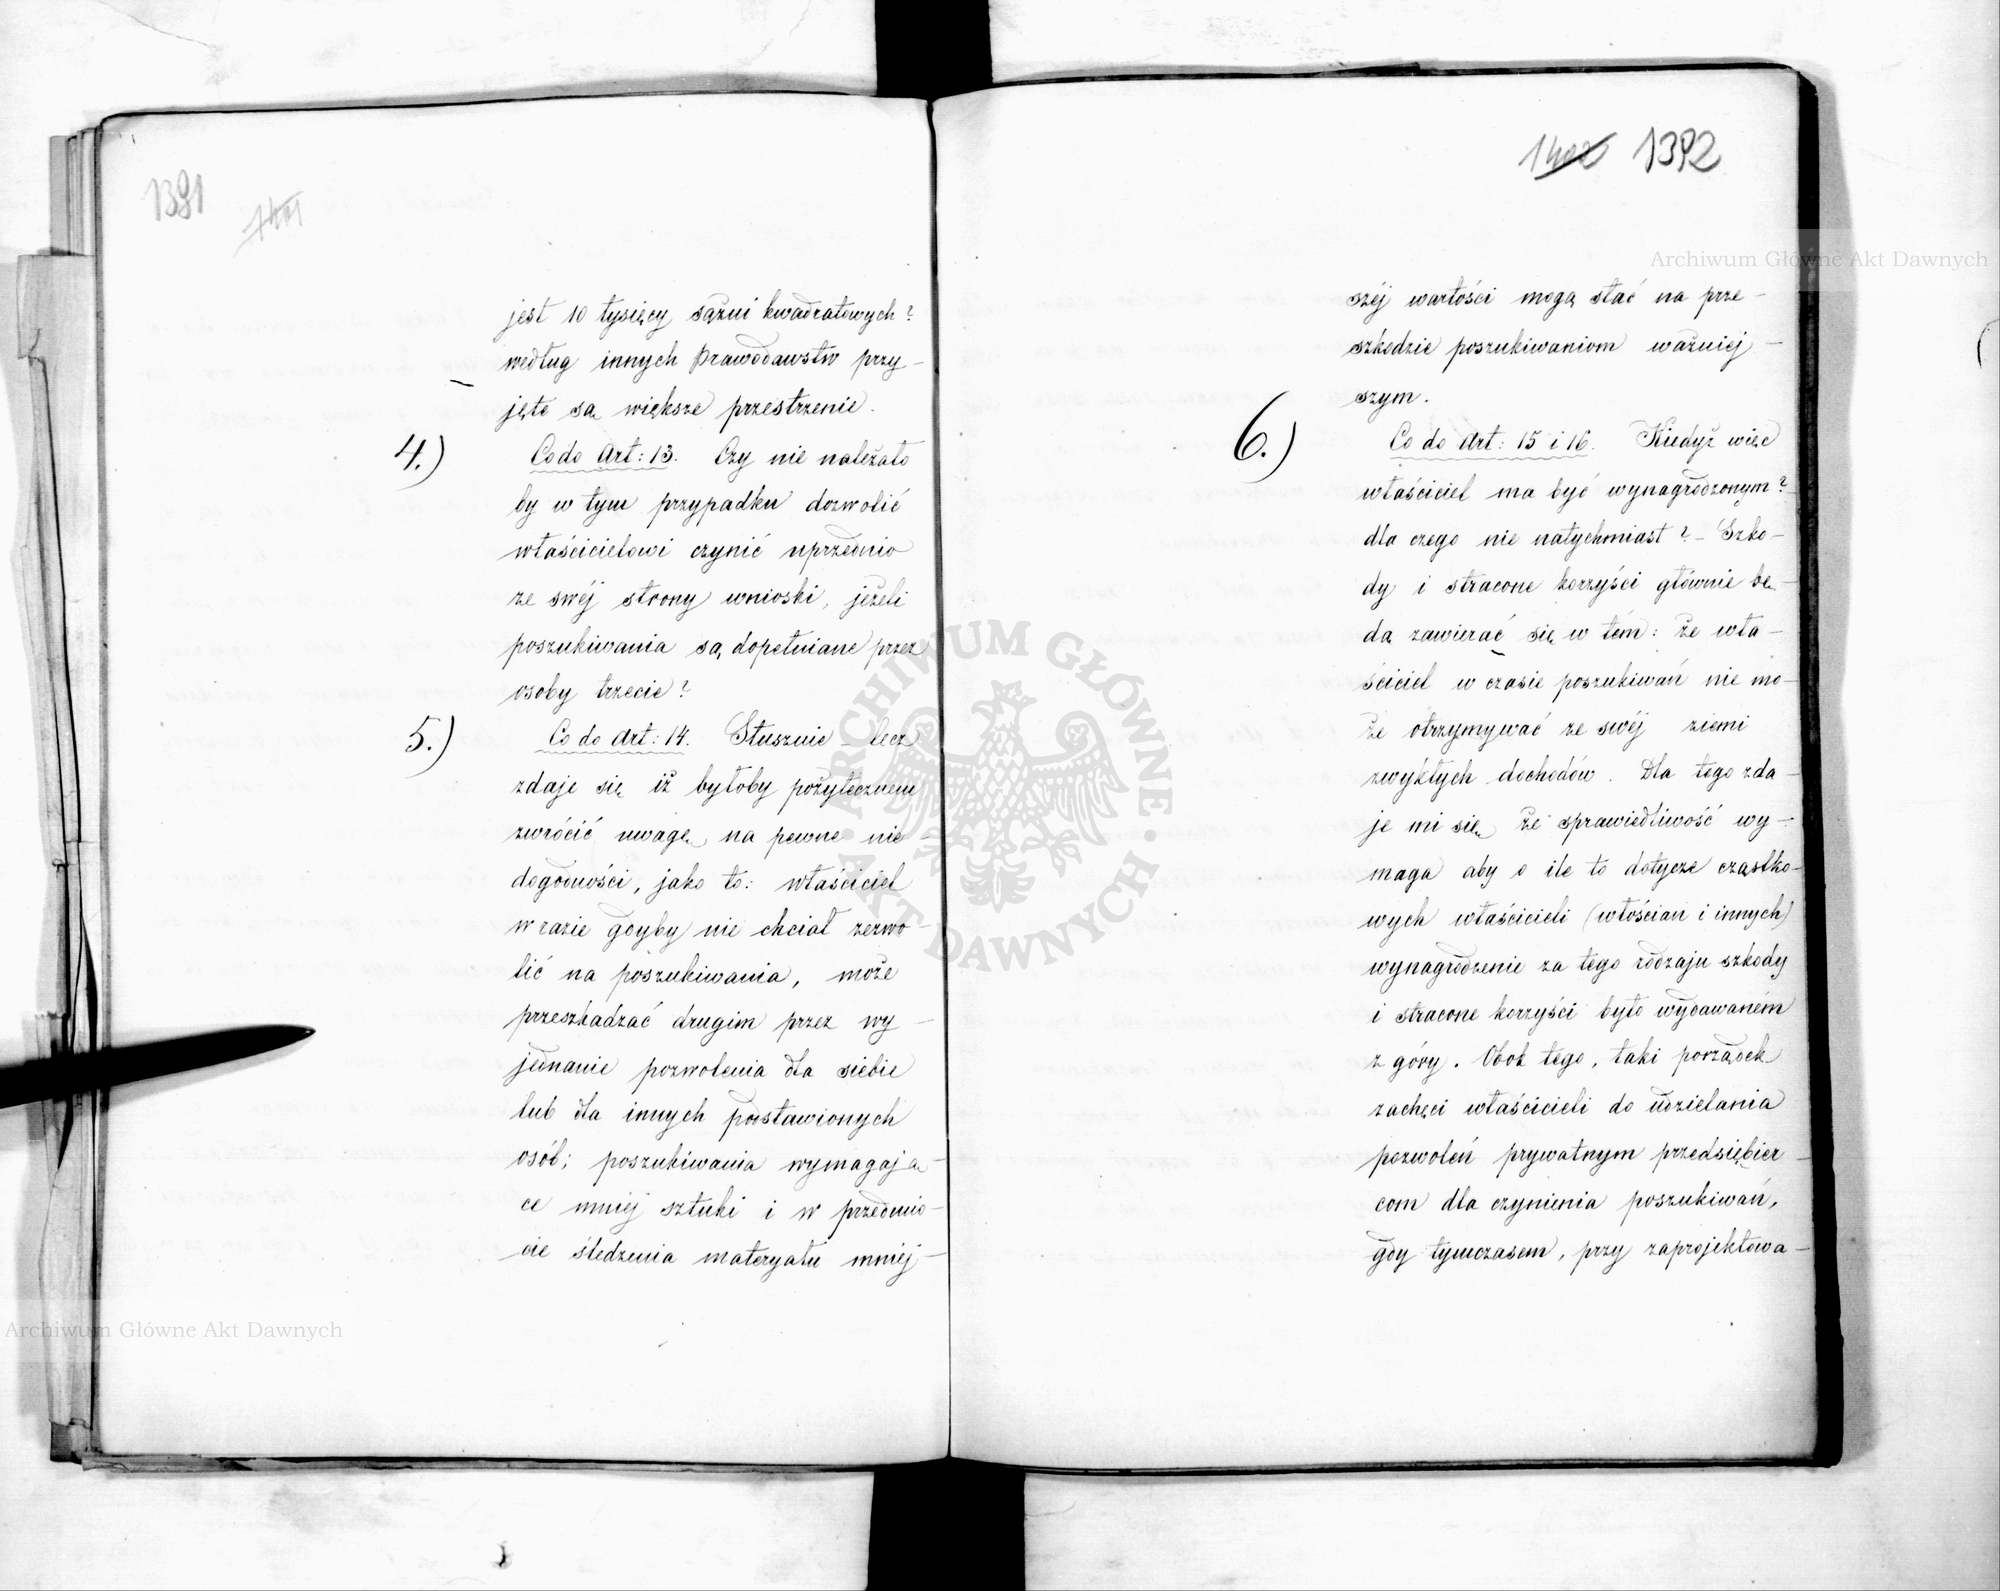 1391 1401
jest 10 tysięcy sążni kwadratowych?
według innych Prawodawstw przy-
jęte są większe przestrzenie.
4.) Co do Art: 13. Czy nie należało
by w tym przypadku dozwolić
właścicielowi czynić uprzednio
ze swéj strony wnioski, jeżeli
poszukiwania są dopełniane przez
osoby trzecie?
5.) Co do Art: 14. Słusznie – lecz
zdaje się iż byłoby pożytecznem
zwrócić uwagę na pewne nie-
dogodności, jako to: właściciel
w razie gdyby nie chciał zezwo-
lić na poszukiwania, może
przeszkadzać drugim przez wy-
jednanie pozwolenia dla siebie
lub dla innych podstawionych
osób; poszukiwania wymagają-
ce mniéj sztuki i w przedmio-
cie śledzenia materyału mniéj-
1402 1392
széj wartości mogą stać na prze-
szkodzie poszukiwaniom ważniéj-
szym.
6.) Co do Art: 15 i 16. Kiedyż więc
właściciel ma być wynagrodzonym?
dla czego nie natychmiast? – Szko-
dy i stracone korzyści głównie bę-
dą zawierać się w tém: że wła-
ściciel w czasie poszukiwań nie mo-
że otrzymywać ze swéj ziemi
zwykłych dochodów. Dla tego zda-
je mi się że sprawiedliwość wy-
maga aby o ile to dotycze cząstko-
wych właścicieli (włościan i innych)
wynagrodzenie za tego rodzaju szkody
i stracone korzyści było wydawaném
z góry. Obok tego, taki porządek
zachęci właścicieli do udzielania
pozwoleń prywatnym przedsiębier-
com dla czynienia poszukiwań,
gdy tymczasem, przy zaprojektowa-
Archiwum Główne Akt Dawnych
ARCHIWUM GŁÓWNE AKT DAWNYCH
Archiwum Główne Akt Dawnych